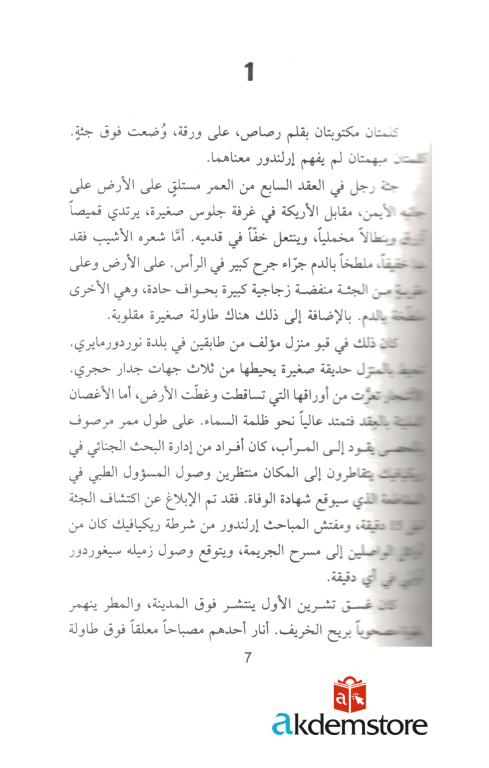 1
كلمتان مكتوبتان بقلم رصاص، على ورقة، وُضعت فوق جثةٍ.
كلمتان مبهمتان لم يفهم إرلندور معناهما.
جثة رجل في العقد السابع من العمر مستلقٍ على الأرض على
الأيمن، مقابل الأريكة في غرفة جلوس صغيرة، يرتدي قميصاً
وبنطالاً مخملياً، وينتعل خفّاً في قدميه. أمَّا شعره الأشيب فقد
خفيفاً، ملطخاً بالدم جرّاء جرح كبير في الرأس. على الأرض وعلى
من الجثة منفضة زجاجية كبيرة بحواف حادة، وهي الأخرى
بالدم. بالإضافة إلى ذلك هناك طاولة صغيرة مقلوبة.
كان ذلك في قبو منزل مؤلف من طابقين في بلدة نوردورمايري.
بالمنزل حديقة صغيرة يحيطها من ثلاث جهات جدار حجري.
تعرَّت من أوراقها التي تساقطت وغطّت الأرض، أما الأغصان
بالعقد فتمتد عالياً نحو ظلمة السماء. على طول ممر مرصوف
يقود إلى المرأب، كان أفراد من إدارة البحث الجنائي في
ريكيافيك يتقاطرون إلى المكان منتظرين وصول المسؤول الطبي في
الذي سيوقع شهادة الوفاة. فقد تم الإبلاغ عن اكتشاف الجثة
دقيقة، ومفتش المباحث إرلندور من شرطة ريكيافيك كان من
الواصلين إلى مسرح الجريمة، ويتوقع وصول زميله سيغوردور
في أي دقيقة.
كان غسق تشرين الأول ينتشر فوق المدينة، والمطر ينهمر
بريح الخريف. أنار أحدهم مصباحاً معلقاً فوق طاولة
7
a
akdemstore